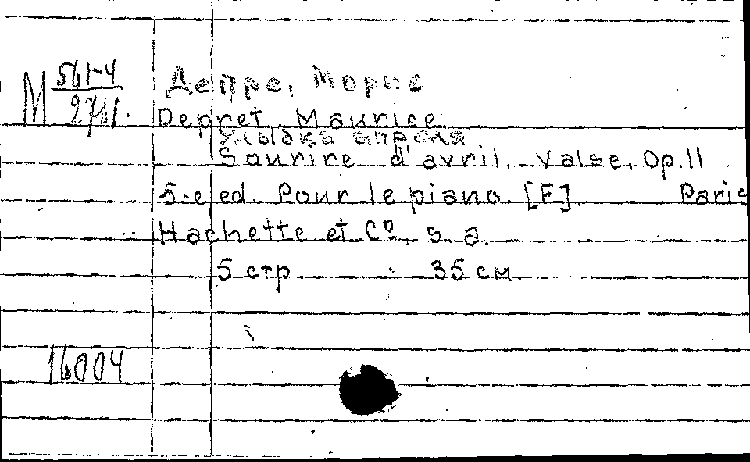 М 561-4
Депре, Морис
Depret, Maurice
Улыбка апреля
Sourire d'avril. Valse, Op.11
5-e ed. Pour le piano. [F] Paris
Hachette et Cº, s. a.
5 стр. 35 см.
16004